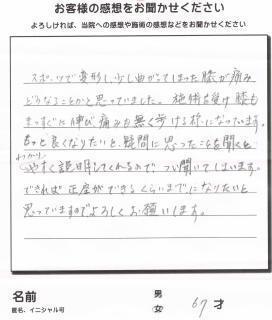 お客様の感想をお聞かせください
よろしければ、当院への感想や施術の感想などをお聞かせください
スポーツで変形し少し曲がってしまった膝が痛み
どうなることかと思っていました。施術を受け膝も
まっすぐに伸び痛みも無く歩ける様になっています。
もっと良くなりたいと、疑問に思ったことを聞くと
わかり
やすく説明してくれるので、つい聞いてしまいます。
できれば正座ができるくらいまでになりたいと
思っていますのでよろしくお願いします。
名前
匿名、イニシャル可
男
女
67才